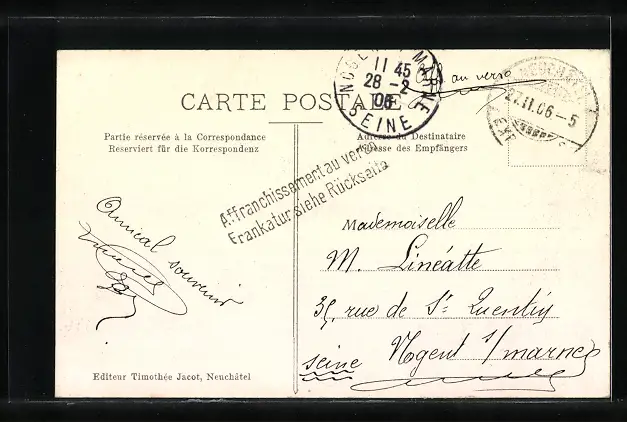 CARTE POSTALE
Partie réservée à la Correspondance
Reserviert für die Korrespondenz
Adresse du Destinataire
Adresse des Empfängers
au verso
11 45
28 - 2
06
SEINE
27.II.06-5
Affranchissement au verso
Frankatur siehe Rückseite
Amical souvenir
Mademoiselle
M. Linéatte
35, rue de St Quentin
Nogent s/ marne
seine
Editeur Timothée Jacot, Neuchâtel